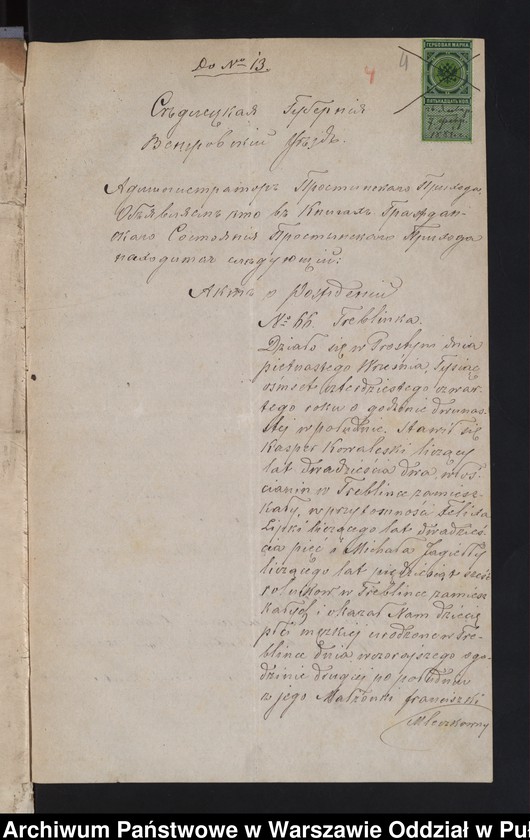 До № 13.
4
4
ГЕРБОВАЯ МАРКА
ПЯТЬНАДЦАТЬ КОП.
Сѣдлецкая Губернія
Венгровскій Уѣздъ.
Администраторъ Простынскаго Прихода,
Объявляетъ что въ Книгахъ Граждан-
скаго Состоянія Простынскаго Прихода
находится слѣдующій:
Актъ о Рожденіи
№ 66. Treblinka.
Działo się w Prostyni dnia
piętnastego Września, Tysiąc
osmset czterdziestego czwar-
tego roku o godzinie dwunas-
stej w południe. Stawił się
Kasper Kowaleski liczący
lat dwadzieścia dwa, włoś-
cianin w Treblince zamiesz-
kały, w przytomności Felixa
Lipki liczącego lat dwadzieś-
cia pięć i Michała Jagiełły
liczącego lat pięćdziesiąt sześć
rolników w Treblince zamiesz
kałych i okazał Nam dziecię
płci męzkiej urodzone w Tre-
blince dnia wczorajszego o go-
dzinie drugiej po południu
z jego Małżonki Franciszki
Mleczkowny
Archiwum Państwowe w Warszawie Oddział w Puł